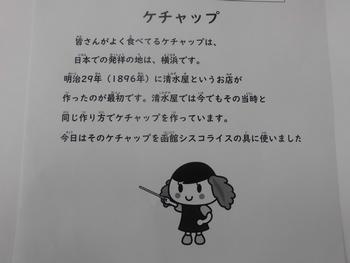 ケチャップ
皆さんがよく食べてるケチャップは、
日本での発祥の地は、横浜です。
明治29年（1896年）に清水屋というお店が
作ったのが最初です。清水屋では今でもその当時と
同じ作り方でケチャップを作っています。
今日はそのケチャップを函館シスコライスの具に使いました